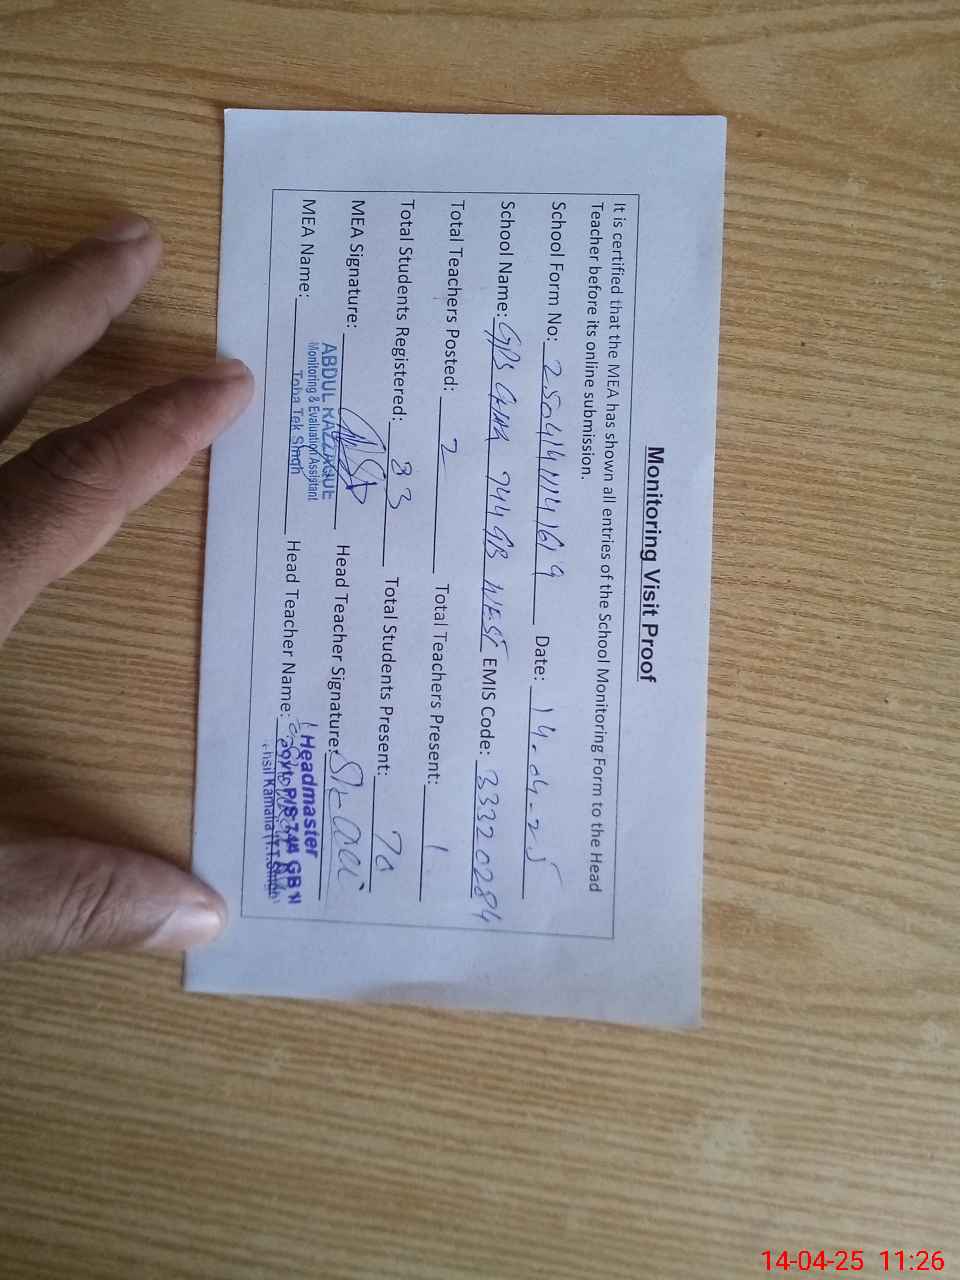 Monitoring Visit Proof
It is certified that the MEA has shown all entries of the School Monitoring Form to the Head
Teacher before its online submission.
School Form No: Date: 14-04-25
School Name: GPS 744 GB WEST EMIS Code: 33320284
Total Teachers Posted: 2 Total Teachers Present: 1
Total Students Registered: 83 Total Students Present: 70
MEA Signature: Head Teacher Signature:
MEA Name: Head Teacher Name:
ABDUL RAZZAQUE
Monitoring & Evaluation Assistant
Toba Tek Singh
Headmaster
Govt. P/S 744 GB
Kamalia
14-04-25 11:26